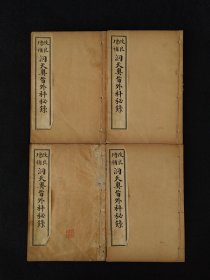 改良
增補
洞天奧旨外科秘錄
改良
增補
洞天奧旨外科秘錄
改良
增補
洞天奧旨外科秘錄
改良
增補
洞天奧旨外科秘錄